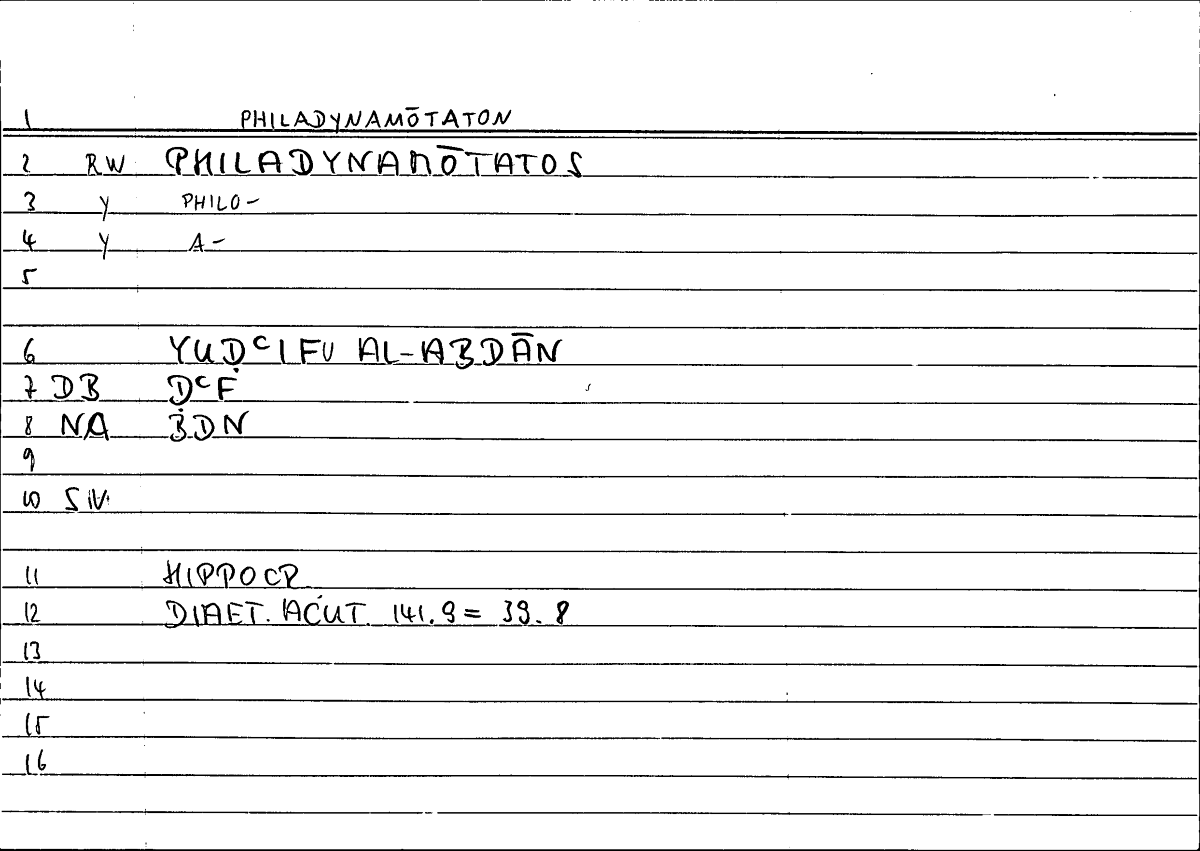 1 PHILADYNAMŌTATON
2 RW PHILADYNAMŌTATOS
3 Y PHILO-
4 Y A-
5
6 YUḌᶜIFU AL-ABDĀN
7 DB ḌᶜF
8 NA BDN
9
10 SIV
11 HIPPOCR
12 DIAET. ACUT. 141.9 = 39.8
13
14
15
16